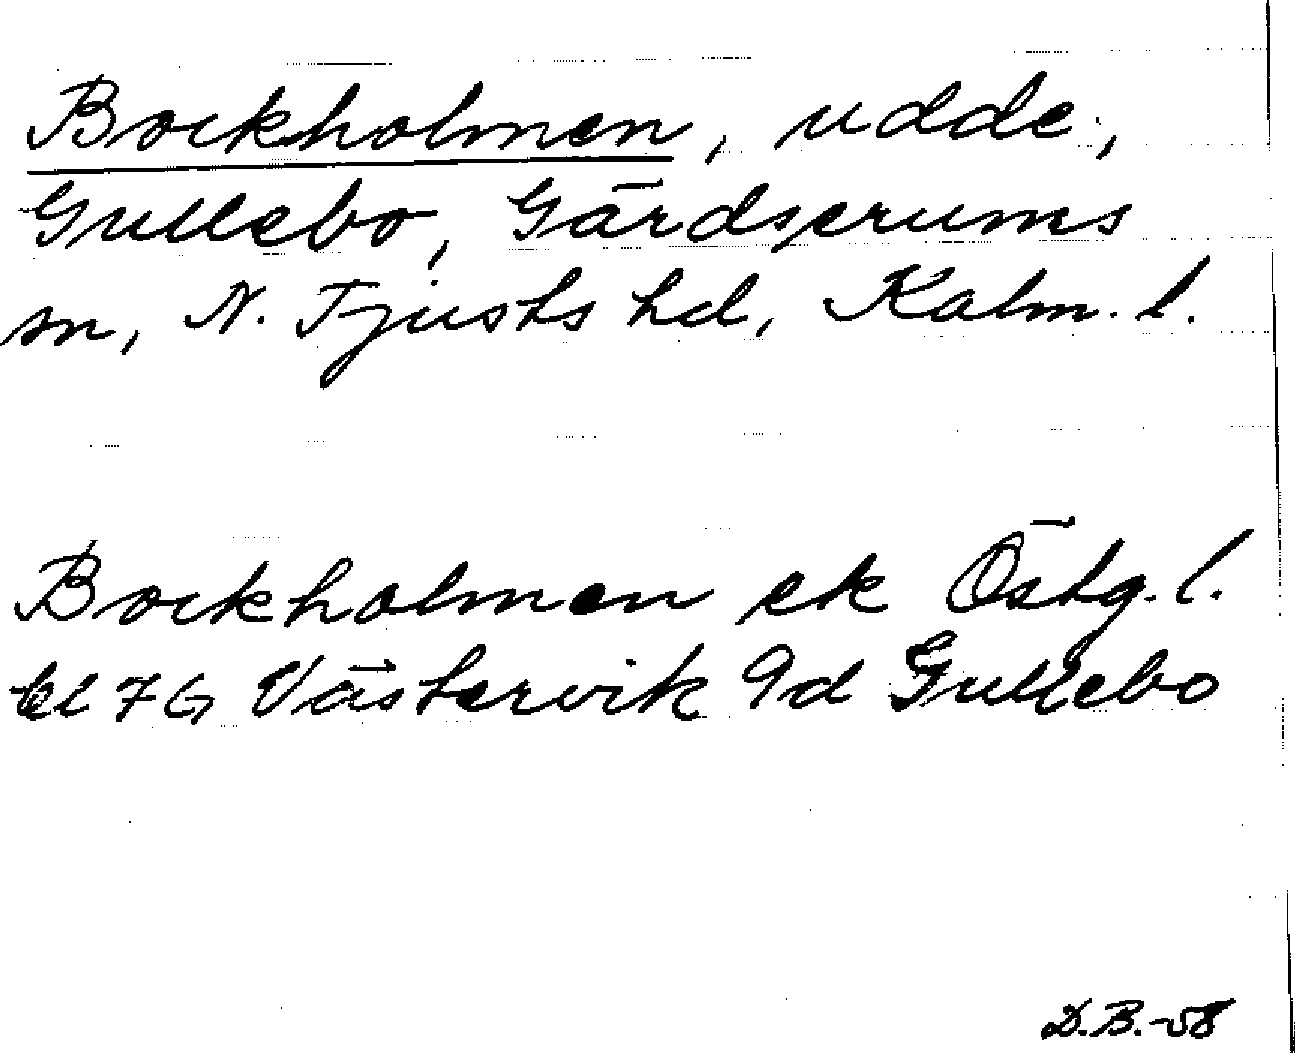 Bockholmen, udde,
Gullebo, Gärdserums
sn, N. Tjusts hd, Kalm. l.
Bockholmen ek Östg. l.
bl 7G Västervik 9d Gullebo
D.B.-58